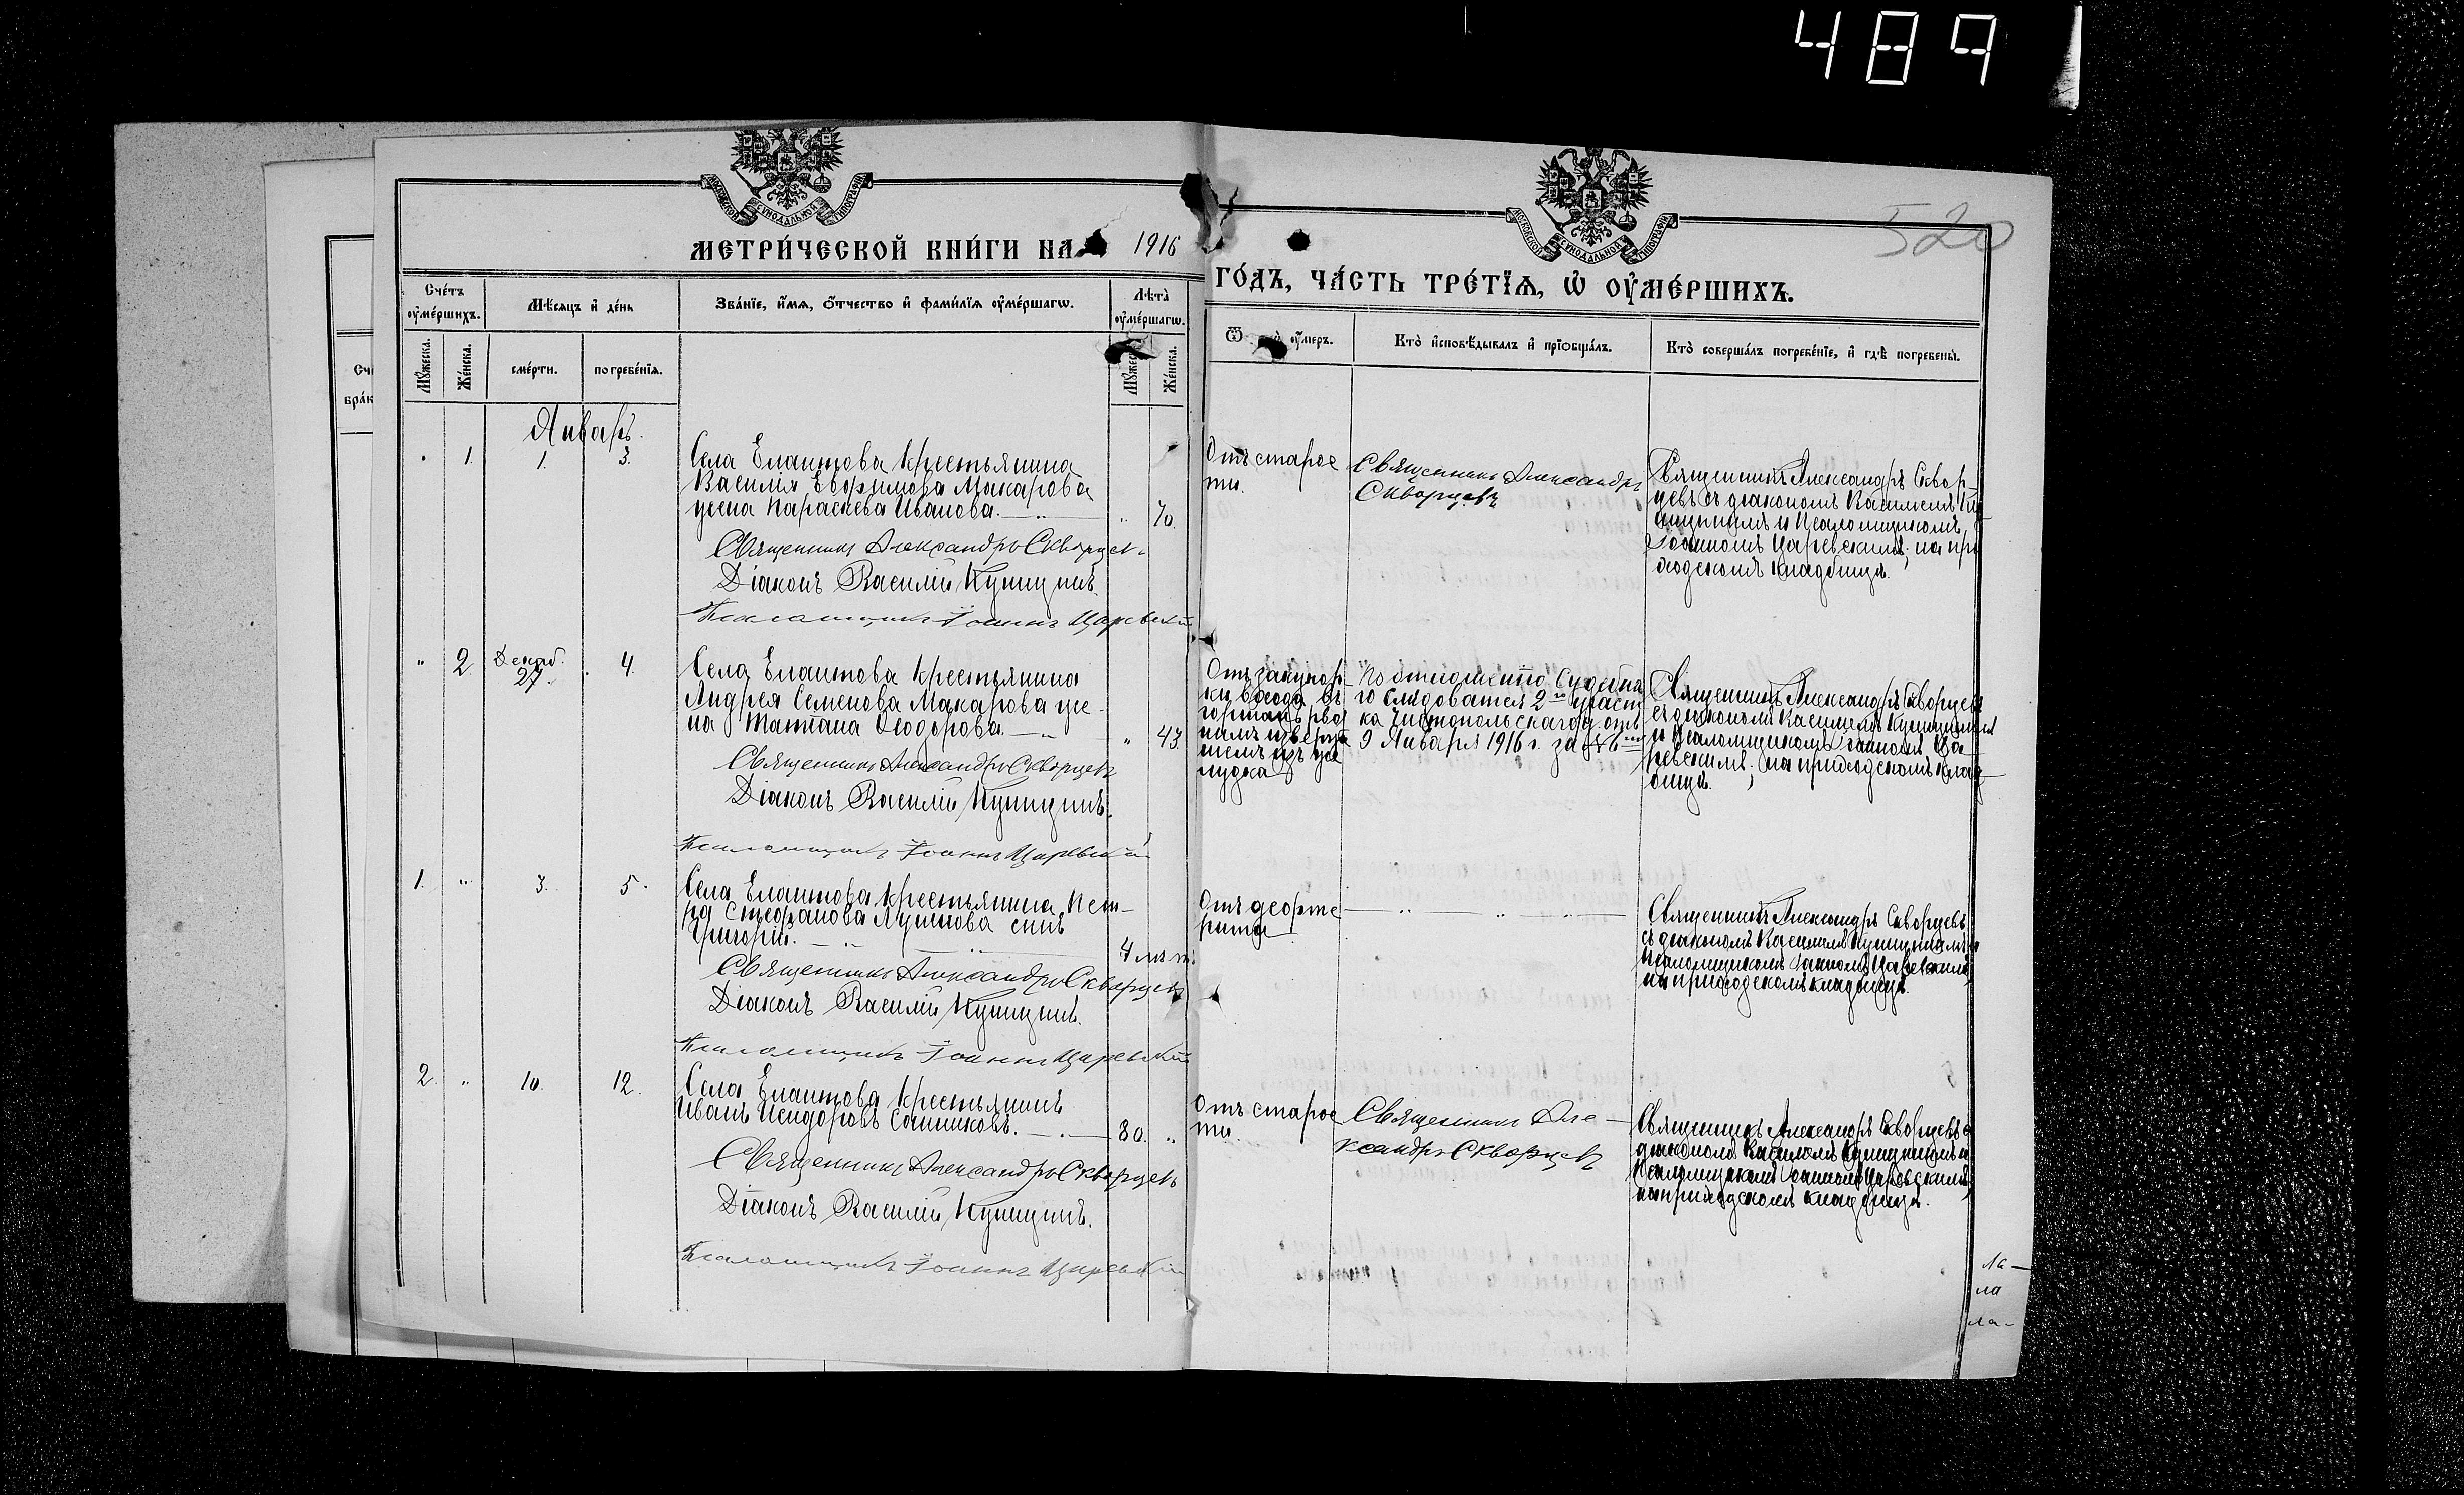 489
520
МОСКОВСКОЙ СѴНОДАЛЬНОЙ ТИПОГРАФІИ
МОСКОВСКОЙ СѴНОДАЛЬНОЙ ТИПОГРАФІИ
МЕТРИ́ЧЕСКОЙ КНИ́ГИ НА 1916
ГО́ДЪ, ЧА́СТЬ ТРЕ́ТІѦ, Ѡ҆ ОУ҆МЕ́РШИХЪ.
Сче́тъ оу҆ме́ршихъ.
Мѣ́сяцъ и҆ де́нь
Зва́ніе, и҆́мѧ, ѻ҆́тчество и҆ фами́лїѧ оу҆ме́ршагѡ.
Лѣта̀ оу҆ме́ршагѡ.
Мꙋ́жеска.
Же́нска.
сме́рти.
погребе́нїѧ.
Же́нска.
оу҆́меръ.
Кто̀ и҆сповѣ́дывалъ и҆ прїѡбща́лъ.
Кто̀ соверша́лъ погребе́нїе, и҆ гдѣ̀ погребены̀.
Январь.
1. 1. 3.
Села Елантова крестьянина
Василія Евфимова Макарова
жена Параскева Иванова. 70.
Священникъ Александръ Скворцевъ
Діаконъ Василій Куницынъ.
Псаломщикъ Іоаннъ Царевскій
Отъ старос
ти.
Священникъ Александръ
Скворцевъ
Священникъ Александръ Сквор-
цевъ съ діакономъ Василіемъ Ку-
ницынымъ и Псаломщикомъ
Іоанномъ Царевскимъ; на при
ходскомъ кладбищѣ.
2 Декаб. 27. 4.
Села Елантова крестьянина
Андрея Семенова Макарова же-
на Татіана Ѳеодорова. 43.
Священникъ Александръ Скворцевъ
Діаконъ Василій Куницынъ.
Псаломщикъ Іоаннъ Царевскій
Отъ закупор-
ки входа въ
гортань рвот
нымъ
изъ же
лудка
По отношенію Судебна
го Слѣдователя 2го участ
ка Чистопольскаго у. отъ
9 Января 1916 г. за № 6мъ
Священникъ Александръ Скворцевъ
съ діакономъ Василіемъ Куницынымъ
и Псаломщикомъ Іоанномъ Ца
ревскимъ; на приходскомъ клад-
бищѣ.
1. 3. 5.
Села Елантова крестьянина Пет-
ра Стефанова сынъ
Григорій. 4 лѣтъ
Священникъ Александръ Скворцевъ
Діаконъ Василій Куницынъ.
Псаломщикъ Іоаннъ Царевскій
Отъ дефте
рита
Священникъ Александръ Скворцевъ
съ діакономъ Василіемъ Куницынымъ и
Псаломщикомъ Іоанномъ Царевскимъ;
на приходскомъ кладбищѣ.
2. 10. 12.
Села Елантова крестьянинъ
Иванъ Исидоровъ 80.
Священникъ Александръ Скворцевъ
Діаконъ Василій Куницынъ.
Псаломщикъ Іоаннъ Царевскій
Отъ старос
ти.
Священникъ Але-
ксандръ Скворцевъ
Священникъ Александръ Скворцевъ съ
діакономъ Василіемъ Куницынымъ и
Псаломщикомъ Іоанномъ Царевскимъ;
на приходскомъ кладбищѣ.